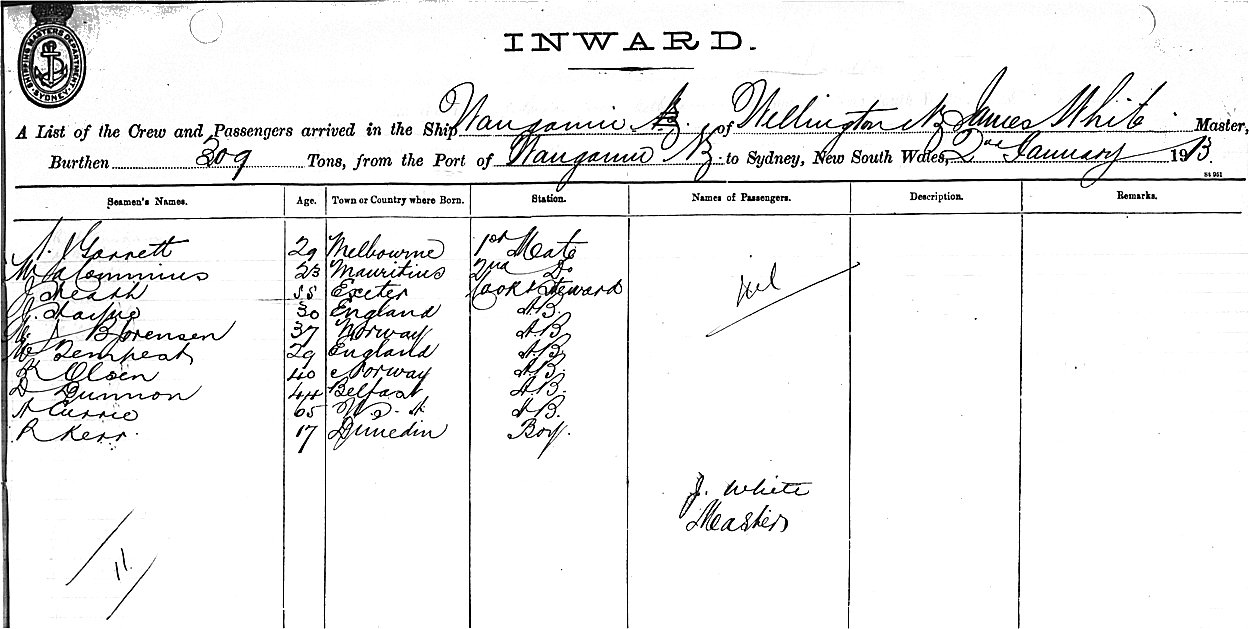 SHIPPING MASTERS DEPARTMENT SYDNEY
INWARD.
A List of the Crew and Passengers arrived in the Ship Wanganui of Wellington NZ James White Master,
Burthen 309 Tons, from the Port of Wanganui NZ to Sydney, New South Wales, 2nd January 1913.
84 951
Seamen's Names. Age. Town or Country where Born. Station. Names of Passengers. Description. Remarks.
Garrett 29 Melbourne 1st Mate
23 Mauritius 2nd Do
J Heath 55 Exeter Cook & Steward nil
30 England A.B.
Sorensen 37 Norway A.B.
W Tempest 29 England A.B.
K Olsen 40 Norway A.B.
D Dunnon 44 Belfast A.B.
A Currie 65 A.B.
R Kerr. 17 Dunedin Boy.
J. White
Master
11